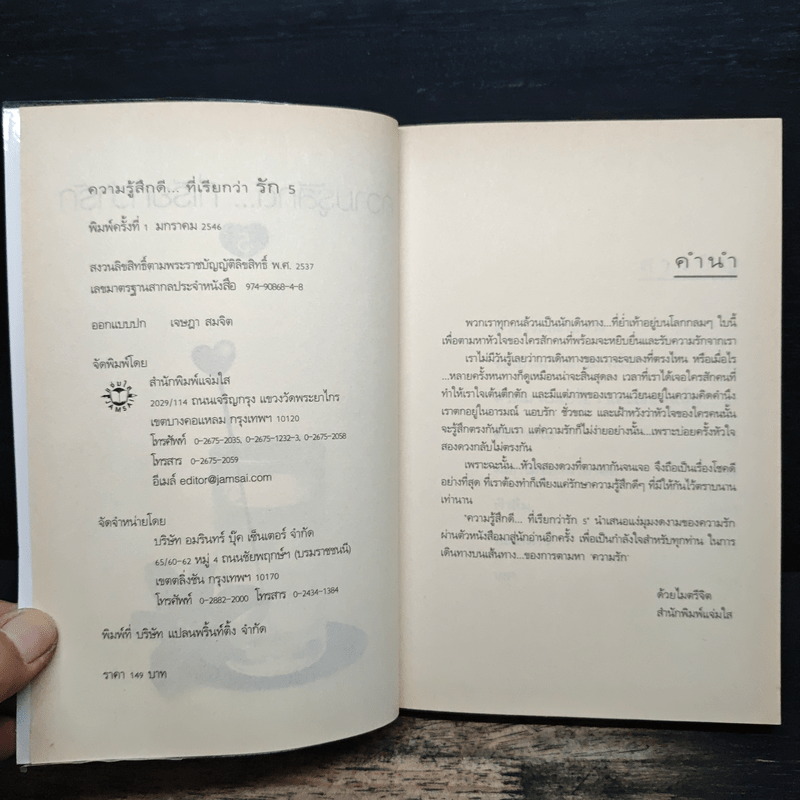 ความรู้สึกดี... ที่เรียกว่า รัก 5
พิมพ์ครั้งที่ 1 มกราคม 2546
สงวนลิขสิทธิ์ตามพระราชบัญญัติลิขสิทธิ์ พ.ศ. 2537
เลขมาตรฐานสากลประจำหนังสือ 974-90868-4-8
ออกแบบปก เจษฎา สมจิต
จัดพิมพ์โดย
สำนักพิมพ์แจ่มใส
2029/114 ถนนเจริญกรุง แขวงวัดพระยาไกร
เขตบางคอแหลม กรุงเทพฯ 10120
โทรศัพท์ 0-2675-2035, 0-2675-1232-3, 0-2675-2058
โทรสาร 0-2675-2059
อีเมล์ editor@jamsai.com
จัดจำหน่ายโดย
บริษัท อมรินทร์ บุ๊ค เซ็นเตอร์ จำกัด
65/60-62 หมู่ 4 ถนนชัยพฤกษ์ฯ (บรมราชชนนี)
เขตตลิ่งชัน กรุงเทพฯ 10170
โทรศัพท์ 0-2882-2000 โทรสาร 0-2434-1384
พิมพ์ที่ บริษัท แปลนพริ้นท์ติ้ง จำกัด
ราคา 149 บาท
คำนำ
พวกเราทุกคนล้วนเป็นนักเดินทาง...ที่ย่ำเท้าอยู่บนโลกกลมๆ ใบนี้
เพื่อตามหาหัวใจของใครสักคนที่พร้อมจะหยิบยื่นและรับความรักจากเรา
เราไม่มีวันรู้เลยว่าการเดินทางของเราจะจบลงที่ตรงไหน หรือเมื่อไร
...หลายครั้งหนทางก็ดูเหมือนน่าจะสิ้นสุดลง เวลาที่เราได้เจอใครสักคนที่
ทำให้เราใจเต้นตึกตัก และมีแต่ภาพของเขาวนเวียนอยู่ในความคิดคำนึง
เราตกอยู่ในอารมณ์ 'แอบรัก' ชั่วขณะ และเฝ้าหวังว่าหัวใจของใครคนนั้น
จะรู้สึกตรงกันกับเรา แต่ความรักก็ไม่ง่ายอย่างนั้น...เพราะบ่อยครั้งหัวใจ
สองดวงกลับไม่ตรงกัน
เพราะฉะนั้น...หัวใจสองดวงที่ตามหากันจนเจอ จึงถือเป็นเรื่องโชคดี
อย่างที่สุด ที่เราต้องทำก็เพียงแค่รักษาความรู้สึกดีๆ ที่มีให้กันไว้ตราบนาน
เท่านาน
"ความรู้สึกดี... ที่เรียกว่ารัก 5" นำเสนอแง่มุมงดงามของความรัก
ผ่านตัวหนังสือมาสู่นักอ่านอีกครั้ง เพื่อเป็นกำลังใจสำหรับทุกท่าน ในการ
เดินทางบนเส้นทาง...ของการตามหา 'ความรัก'
ด้วยไมตรีจิต
สำนักพิมพ์แจ่มใส